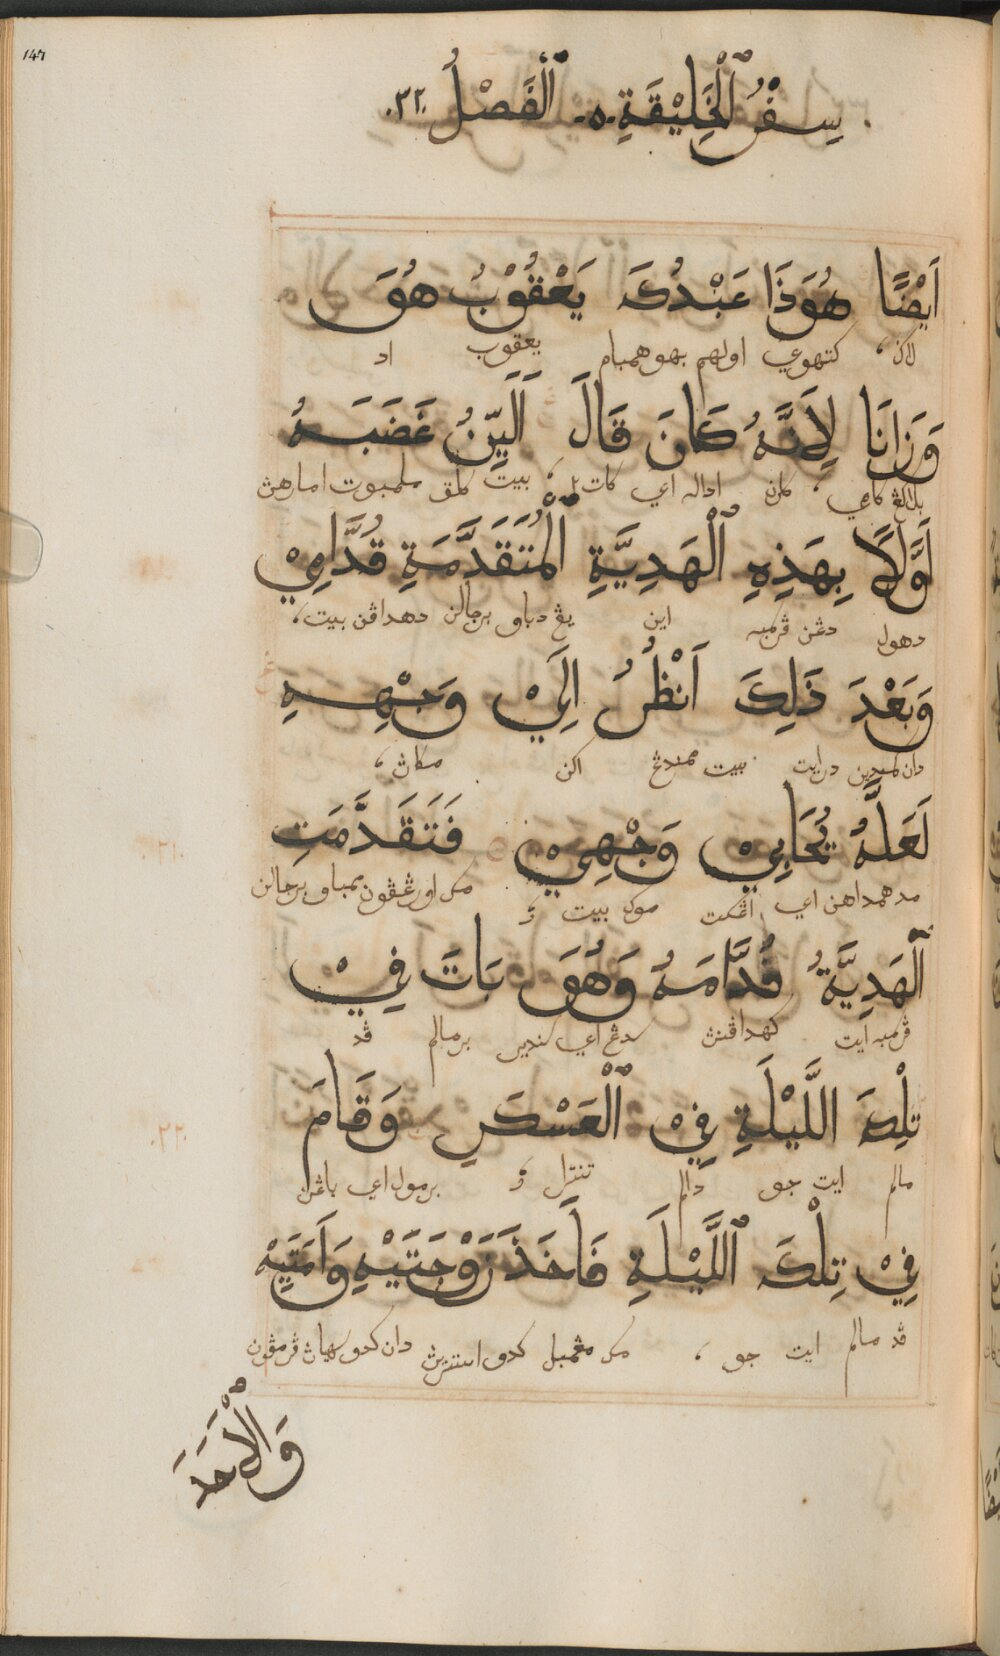 147
سِفْرُ ٱلْخَلِيْقَةِ .٥. ٱلْفَصْلُ .٣٢.
اَيْضًا هُوَذَا عَبْدُكَ يَعْقُوْبُ هُوَ
لاکن، كتهوي اولهم بهو همبام يعقوب اد
وَرَانَا لِاَنَّهُ كَانَ قَالَ اُلَيِّنُ غَضَبَهُ
بلاكڠ كامي، كارن اداله اي كات٢، بيت ملمبوت امارهڽ
اَوَّلًا بِهَذِهِ ٱلْهَدِيَّةِ ٱلْمُتَقَدَّمَةِ قُدَّامِيْ
دهول دڠن ڤرمبه اين يڠ دباو برجالن دهداڤن بيت،
وَبَعْدَ ذَلِكَ اَنْظُرُ اِلَيْ وَجْهِهِ
دان كمدين درايت بيت ممندڠ اكن مكاڽ،
لَعَلَّهُ يُحَابِيْ وَجْهِيْ فَتَقَدَّمَتِ
مدهمداهن اي اڠكت موك بيت مك اورڠڤون ممباو برجالن
.٢١.
ٱلْهَدِيَّةُ قُدَّامَهُ وَهُوَ بَاتَ فِيْ
ڤرمبه ايت كهداڤنڽ سدڠ اي كنديري برمالم ڤد
تِلْكَ اللَّيْلَةِ فِيْ ٱلْعَسْكَرِ وَقَامَ
مالم ايت جوء دالم تنترا برمول اي باڠن
.٢٢.
فِيْ تِلْكَ ٱللَّيْلَةِ فَاَخَذَ زَوْجَتَيْهِ وَاَمَتَيْهِ
ڤد مالم ايت جوء، مك مڠمبل كدو استريڽ دان كدو سهياڽ ڤرمڤون
وَٱلْاَحَدَ